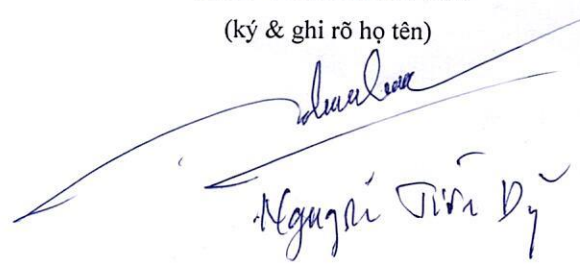 (ký & ghi rõ họ tên)
Nguyễn Tiến Dỹ